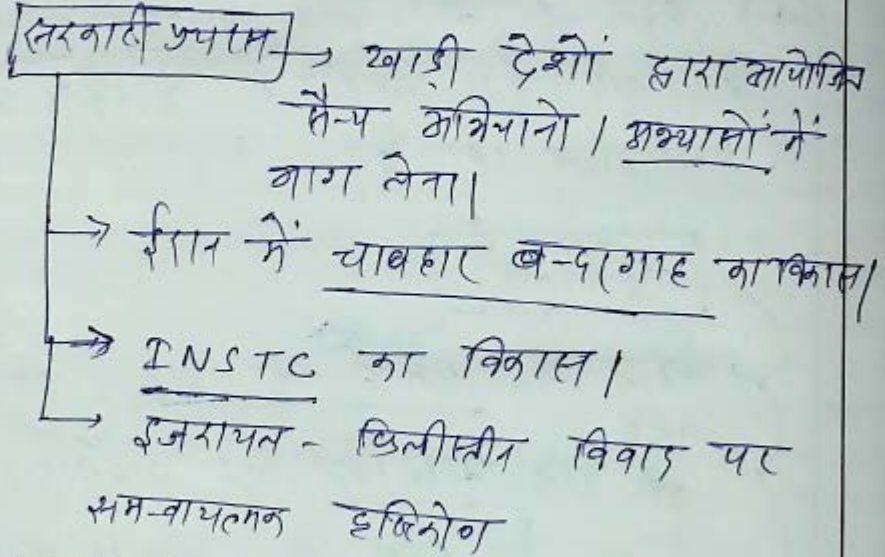 सरकारी प्रयास → खाड़ी देशों द्वारा आयोजित
सैन्य अभियानो / अभ्यासों में
भाग लेना।
→ ईरान में चाबहार बन्दरगाह का विकास।
→ INSTC का विकास।
→ इजरायल - फिलीस्तीन विवाद पर
समन्वयात्मक दृष्टिकोण